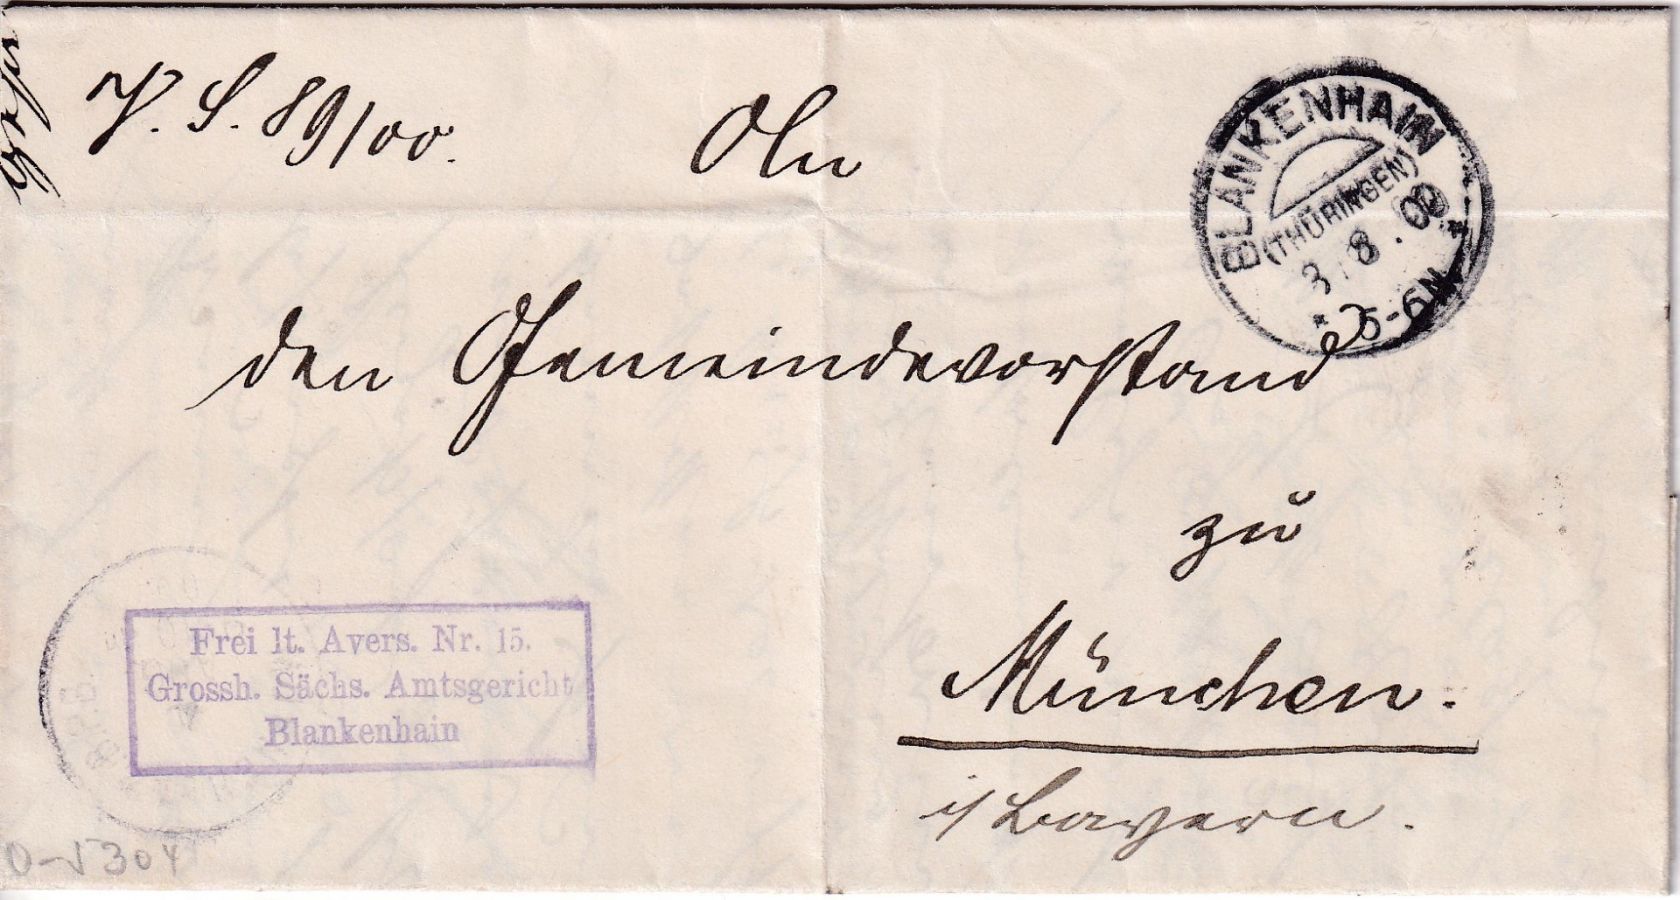 V. S. 89/00.
An
den Gemeindevorstand
zu
München.
i/ Bayern.
BLANKENHAIN
(THÜRINGEN)
3.8.00
* 5-6N *
Frei lt. Avers. Nr. 15.
Grossh. Sächs. Amtsgericht
Blankenhain